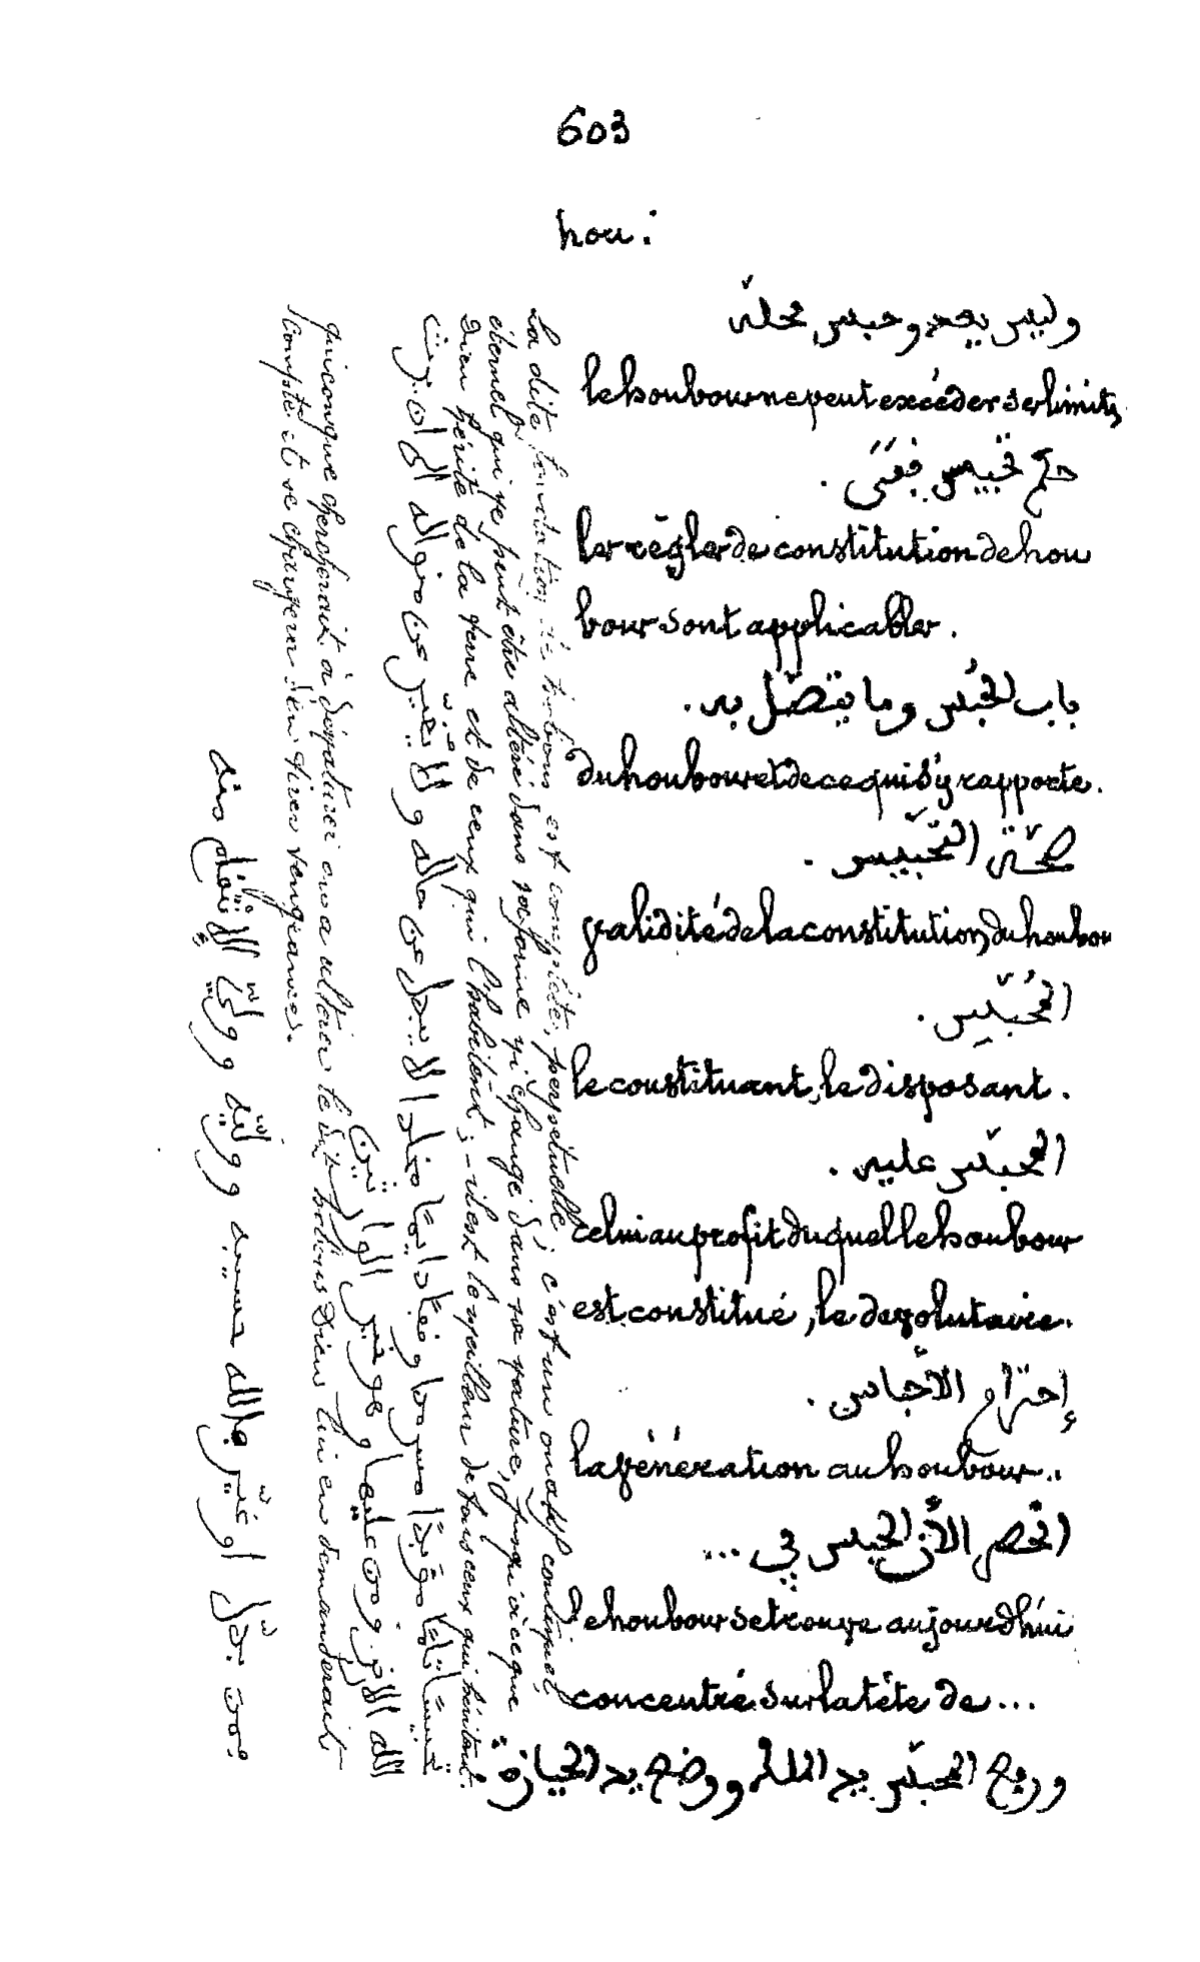 603
hou :
وليس يعدو حبس محلّه
le houbour ne peut excéder ses limites
حكم تحبيس
les règles de constitution de hou
bour sont applicables.
باب الحُبُس وما يتصّل به.
du houbour et de ce qui s'y rapporte.
صحّة التحبيس.
validité de la constitution du houbou
المُحَبِّس.
le constituant, le disposant.
المحبَّس عليه.
celui au profit duquel le houbour
est constitué, le dévolutaire.
إحترام الأحباس.
la vénération au houbour..
انحصر الأن الحبس في ...
le houbour se trouve aujourd'hui
concentré sur la tête de ...
ورفع المحبّس يد الملك ووضع يد الحيازة.
La dite fondation de hobous est complète, perpétuelle; c'est un ouakf continuel,
éternel qui ne peut être altéré dans sa forme ni changé dans sa nature, jusqu'à ce que
Dieu hérite de la terre et de ceux qui l'habitent; – il est le meilleur de tous ceux qui héritent.
الله الارض ومن عليها وهو خير الوارثين
quiconque chercherait à dénaturer ou a altérer le dit hobous Dieu lui en demanderait
compte et se chargera d'en tirer vengeance.
فمن بدّل او غيّر فالله حسيبه ووليّه ووليّ الانتقام منه